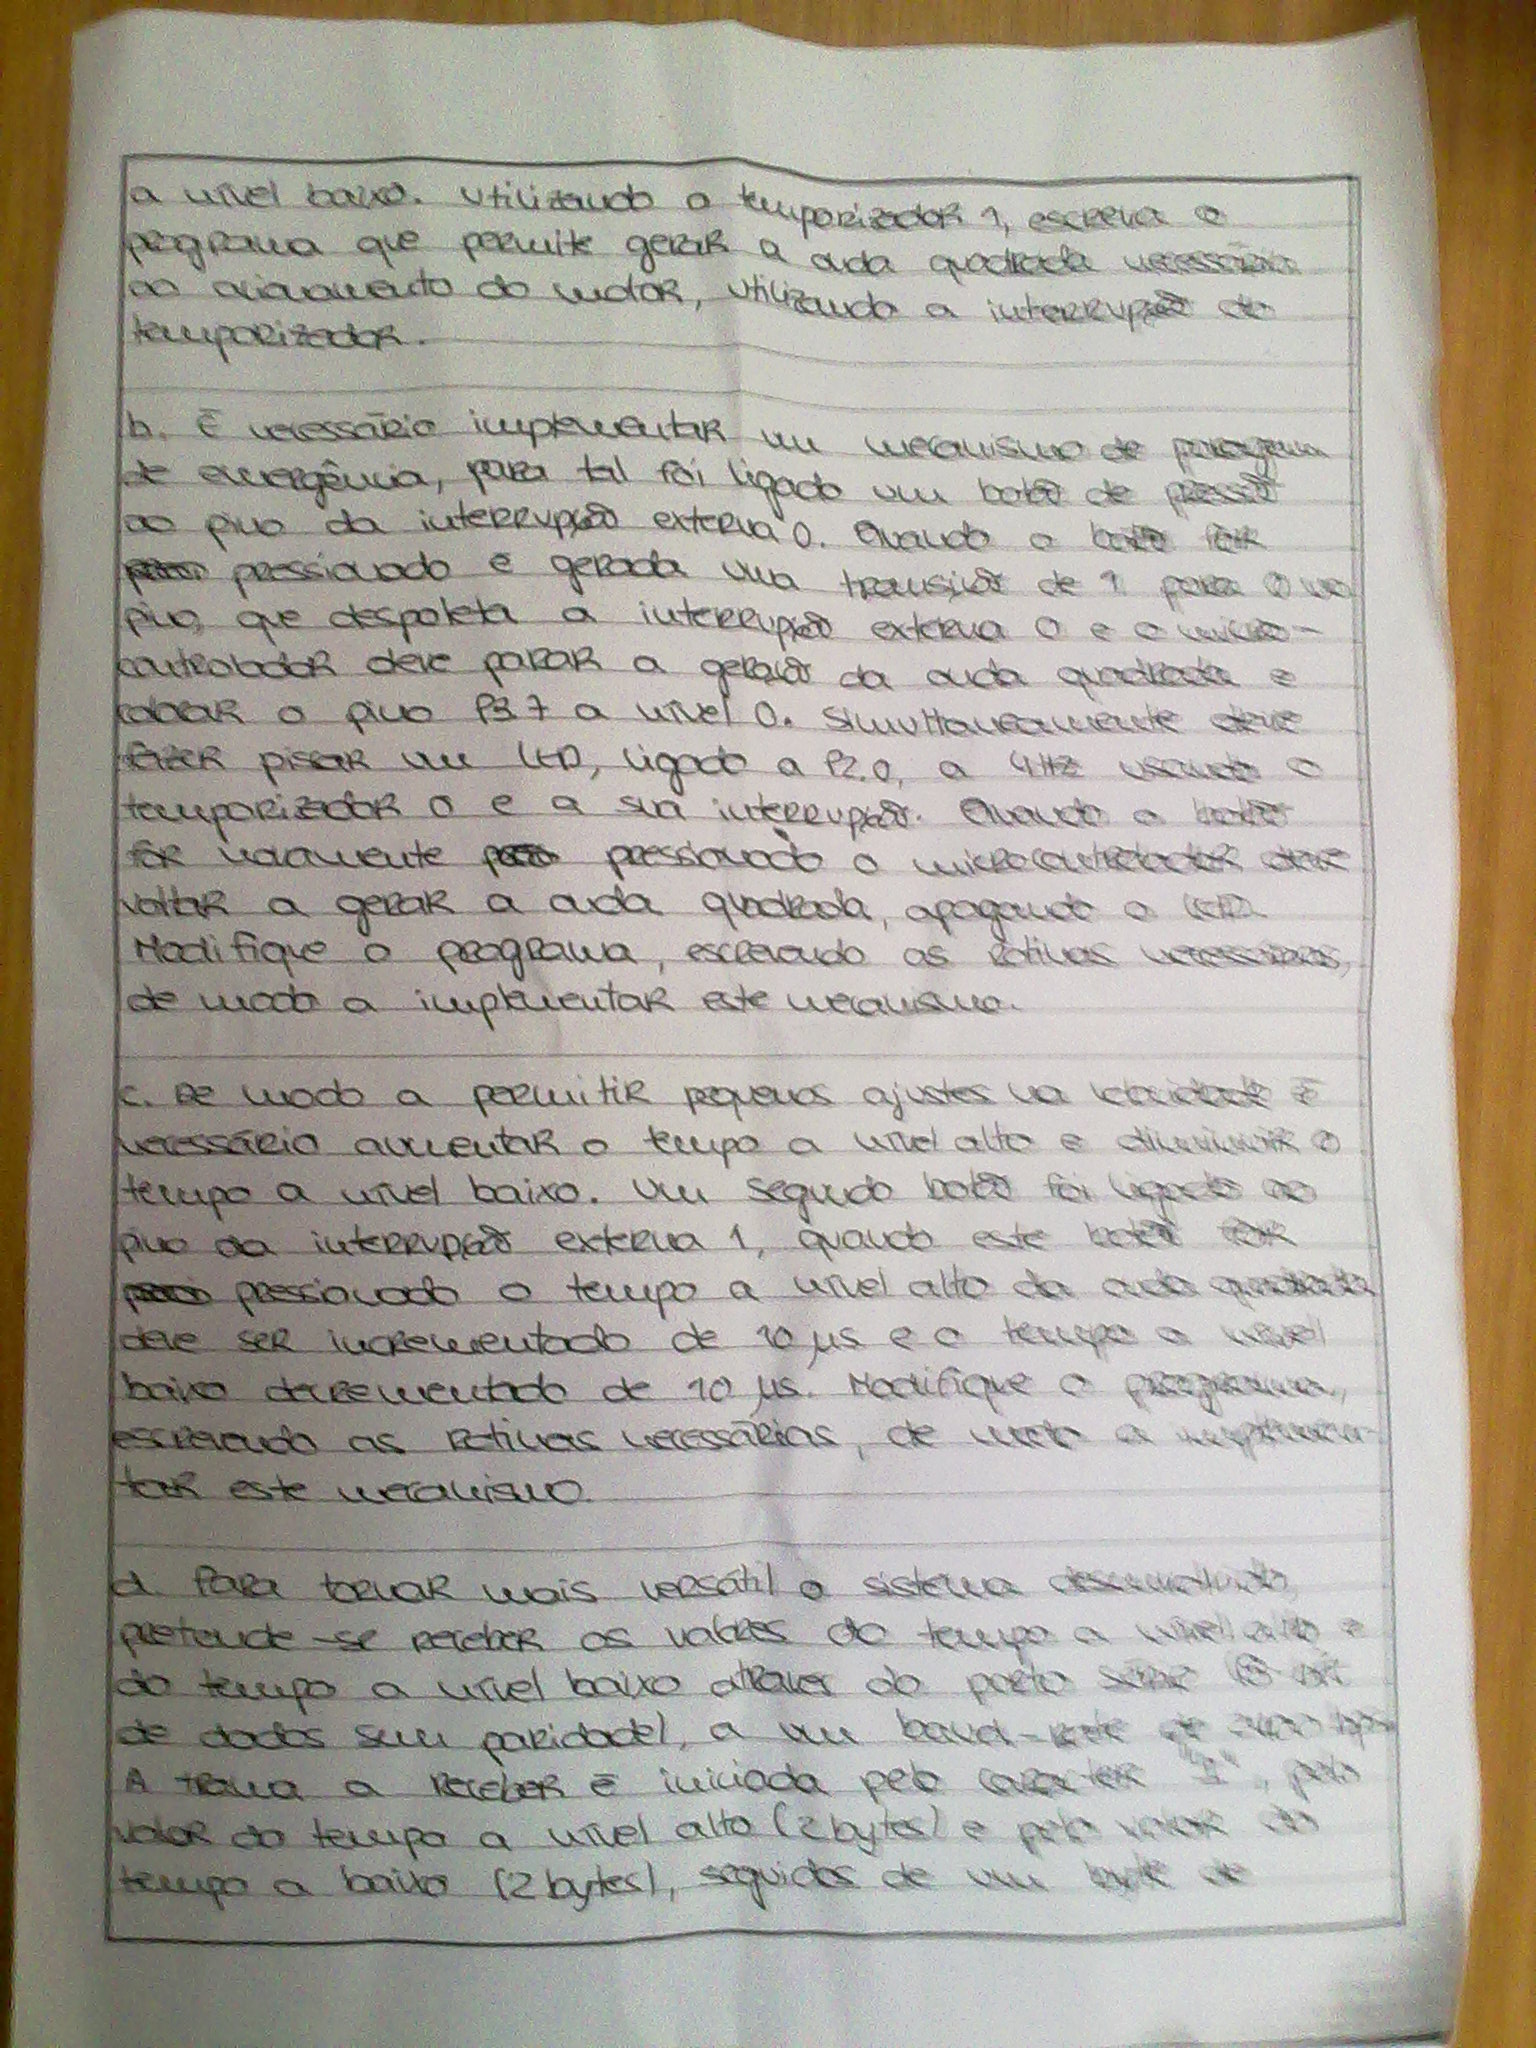 a nível baixo. Utilizando o temporizador 1, escreva o
programa que permite gerar a onda quadrada necessária
ao acionamento do motor, utilizando a interrupção do
temporizador.
b. É necessário implementar um mecanismo de paragem
de emergência, para tal foi ligado um botão de pressão
ao pino da interrupção externa 0. Quando o botão for
pressionado é gerada uma transição de 1 para 0 no
pino, que despoleta a interrupção externa 0 e o micro-
controlador deve parar a geração da onda quadrada e
colocar o pino P3.7 a nível 0. Simultaneamente deve
fazer piscar um LED, ligado a P2.0, a 4Hz usando o
temporizador 0 e a sua interrupção. Quando o botão
for novamente pressionado o microcontrolador deve
voltar a gerar a onda quadrada, apagando o LED.
Modifique o programa, escrevendo as rotinas necessárias,
de modo a implementar este mecanismo.
c. De modo a permitir pequenos ajustes na velocidade é
necessário aumentar o tempo a nível alto e diminuir o
tempo a nível baixo. Um segundo botão foi ligado ao
pino da interrupção externa 1, quando este botão for
pressionado o tempo a nível alto da onda quadrada
deve ser incrementado de 10 µs e o tempo a nível
baixo decrementado de 10 µs. Modifique o programa,
escrevendo as rotinas necessárias, de modo a implemen-
tar este mecanismo.
d. Para tornar mais versátil o sistema desenvolvido,
pretende-se receber os valores do tempo a nível alto e
do tempo a nível baixo através do porto série (8 bit
de dados sem paridade), a um baud-rate de
A trama a receber é iniciada pelo caracter pelo
valor do tempo a nível alto (2 bytes) e pelo valor do
tempo a baixo (2 bytes), seguidos de um byte de